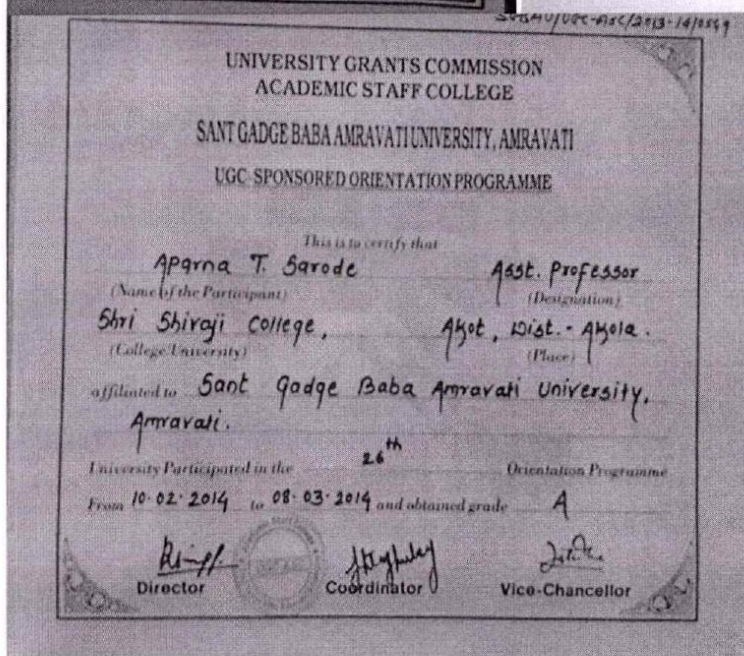 SGBAU/UGC-ASC/2013-14/0569
UNIVERSITY GRANTS COMMISSION
ACADEMIC STAFF COLLEGE
SANT GADGE BABA AMRAVATI UNIVERSITY, AMRAVATI
UGC-SPONSORED ORIENTATION PROGRAMME
This is to certify that
Aparna T. Sarode Asst. Professor
(Name of the Participant) (Designation)
Shri Shivaji College, Akot, Dist.- Akola.
(College/University) (Place)
affiliated to Sant Gadge Baba Amravati University,
Amravati.
University Participated in the 26th Orientation Programme
From 10.02.2014 to 08.03.2014 and obtained grade A
Director Coordinator Vice-Chancellor